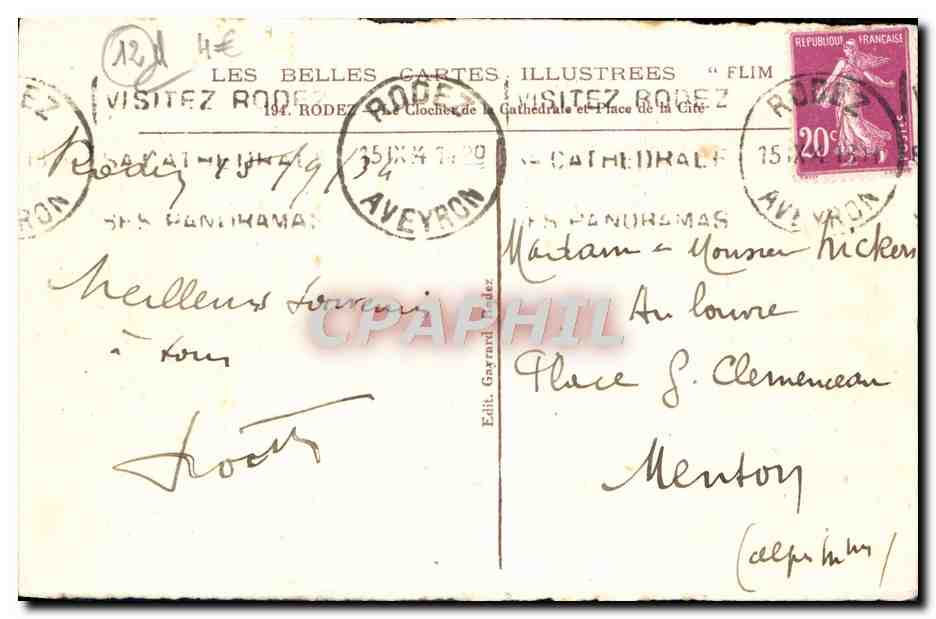 12 4€
LES BELLES CARTES ILLUSTREES "FLIM
194. RODEZ - Le Clocher de la Cathédrale et Place de la Cité
REPUBLIQUE FRANÇAISE
20c
POSTES
VISITEZ RODEZ
SA CATHEDRALE
SES PANORAMAS
RODEZ
15 IX 34
AVEYRON
VISITEZ RODEZ
SA CATHEDRALE
SES PANORAMAS
RODEZ
15 IX
AVEYRON
EZ
RON
Rodez 15/9/34
Meilleurs souvenirs
à tous
Edit. Gayrard Rodez
CPAPHIL
Madame Monsieur
Au Louvre
Place G. Clemenceau
Menton
(Alpes Mmes)